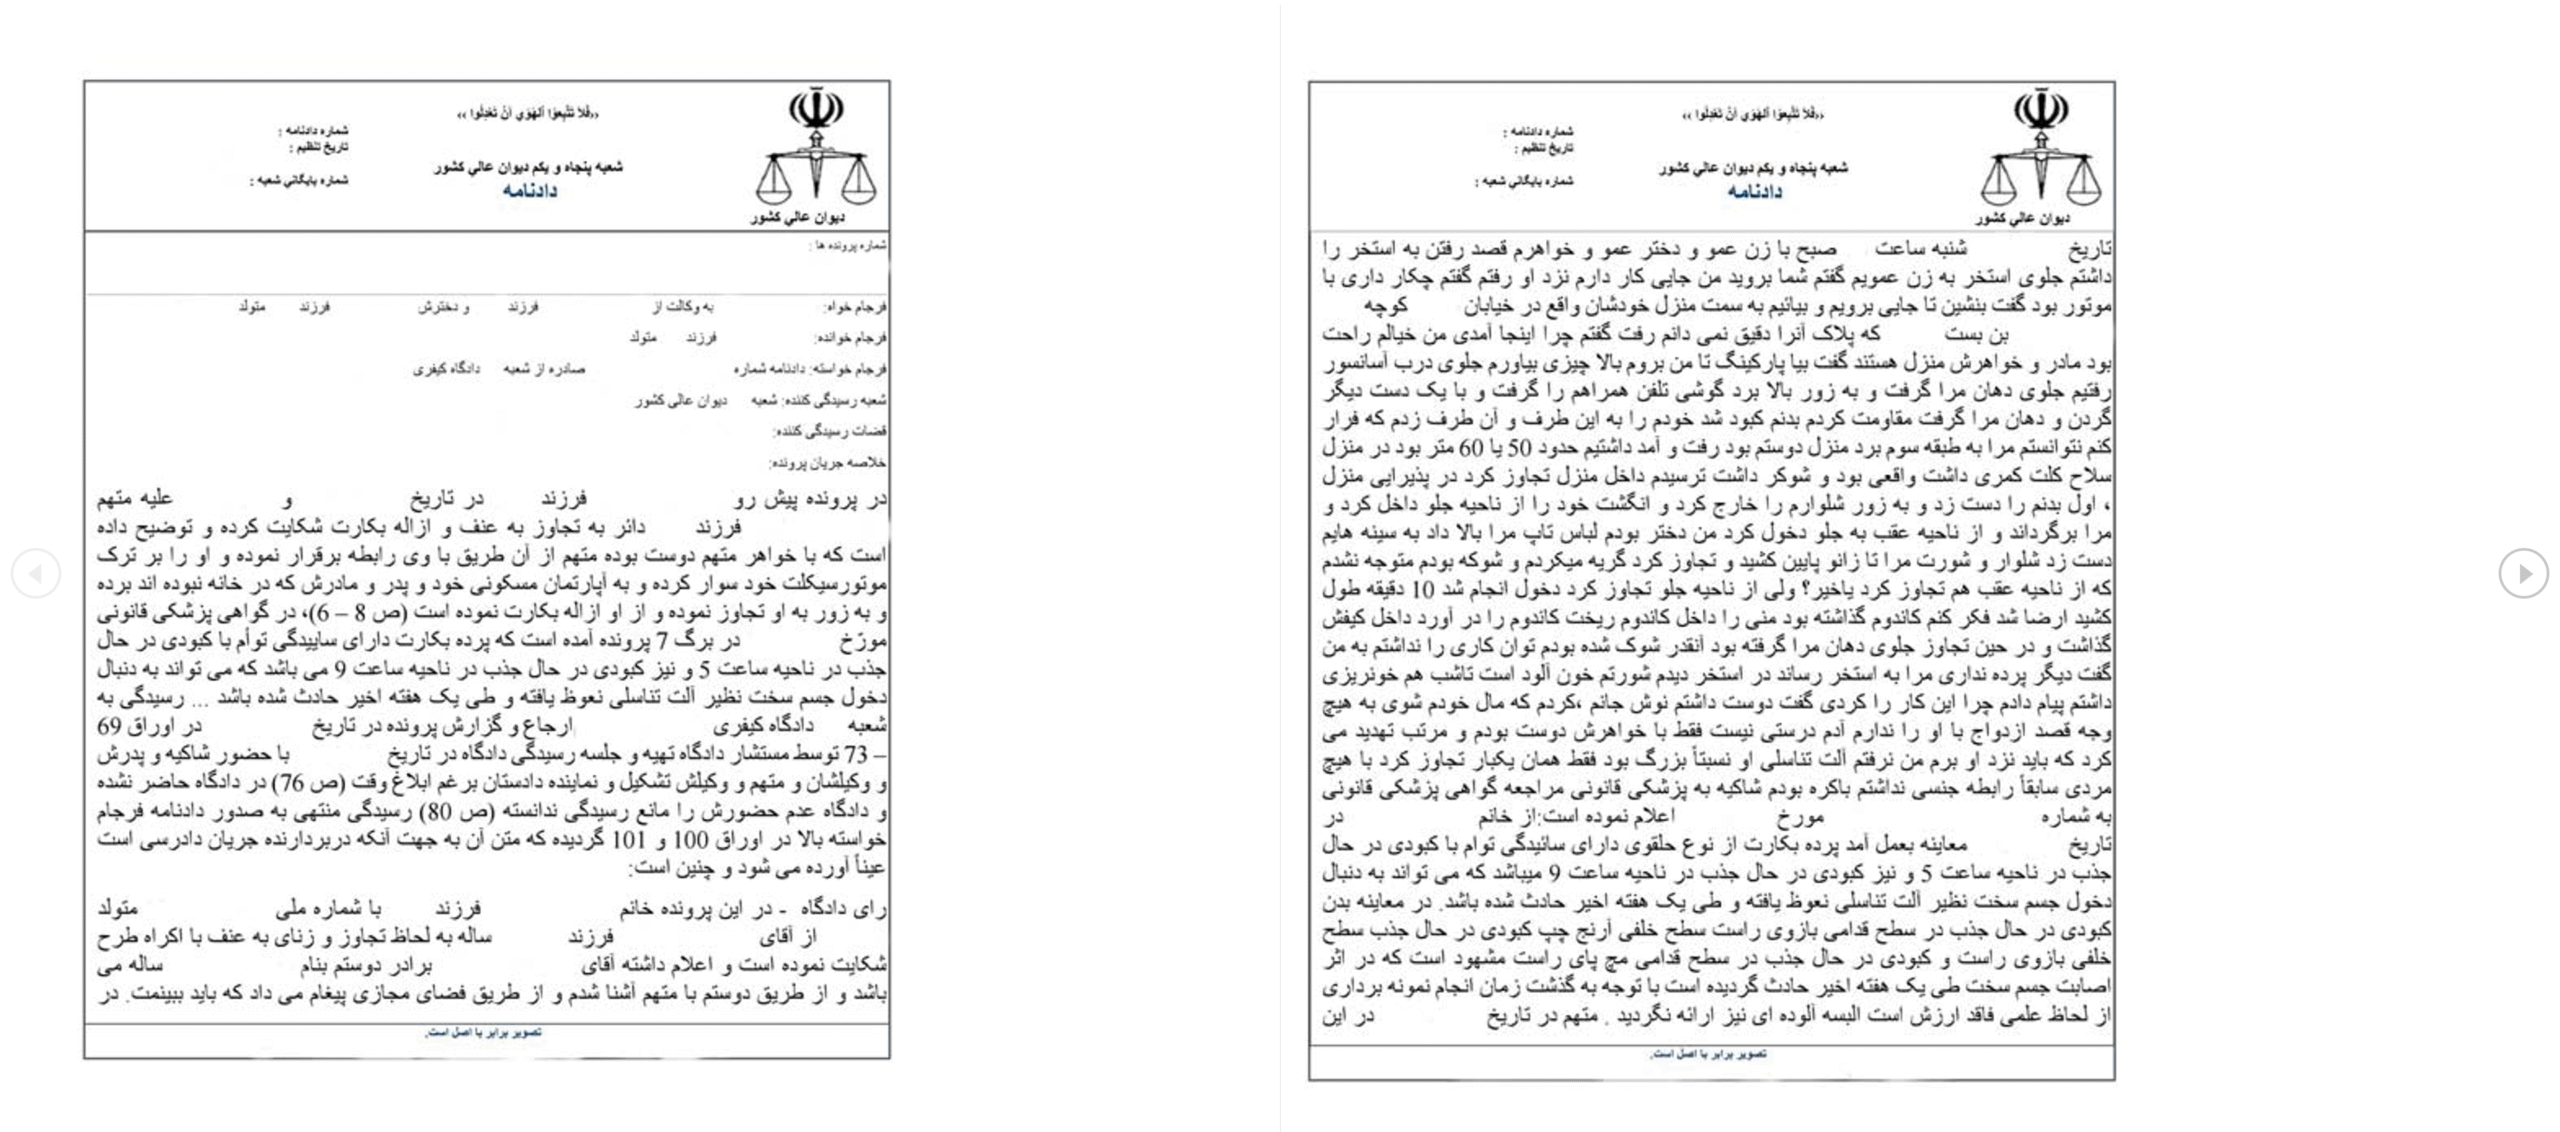 «فَلا تَتَّبِعُوا الْهَوَى أَنْ تَعْدِلُوا»
شماره دادنامه :
تاریخ تنظیم :
شماره بایگانی شعبه :
شعبه پنجاه و یکم دیوان عالی کشور
دادنامه
دیوان عالی کشور
شماره پرونده ها :
فرجام خواه: به وکالت از فرزند و دخترش فرزند متولد
فرجام خوانده: فرزند متولد
فرجام خواسته: دادنامه شماره صادره از شعبه دادگاه کیفری
شعبه رسیدگی کننده: شعبه دیوان عالی کشور
قضات رسیدگی کننده:
خلاصه جریان پرونده:
در پرونده پیش رو فرزند در تاریخ و علیه متهم
فرزند دائر به تجاوز به عنف و ازاله بکارت شکایت کرده و توضیح داده
است که با خواهر متهم دوست بوده متهم از آن طریق با وی رابطه برقرار نموده و او را بر ترک
موتورسیکلت خود سوار کرده و به آپارتمان مسکونی خود و پدر و مادرش که در خانه نبوده اند برده
و به زور به او تجاوز نموده و از او ازاله بکارت نموده است (ص 8 – 6)، در گواهی پزشکی قانونی
مورّخ در برگ 7 پرونده آمده است که پرده بکارت دارای ساییدگی توأم با کبودی در حال
جذب در ناحیه ساعت 5 و نیز کبودی در حال جذب در ناحیه ساعت 9 می باشد که می تواند به دنبال
دخول جسم سخت نظیر آلت تناسلی نعوظ یافته و طی یک هفته اخیر حادث شده باشد ... رسیدگی به
شعبه دادگاه کیفری ارجاع و گزارش پرونده در تاریخ در اوراق 69
– 73 توسط مستشار دادگاه تهیه و جلسه رسیدگی دادگاه در تاریخ با حضور شاکیه و پدرش
و وکیلشان و متهم و وکیلش تشکیل و نماینده دادستان برغم ابلاغ وقت (ص 76) در دادگاه حاضر نشده
و دادگاه عدم حضورش را مانع رسیدگی ندانسته (ص 80) رسیدگی منتهی به صدور دادنامه فرجام
خواسته بالا در اوراق 100 و 101 گردیده که متن آن به جهت آنکه دربردارنده جریان دادرسی است
عیناً آورده می شود و چنین است:
رای دادگاه - در این پرونده خانم فرزند با شماره ملی متولد
از آقای فرزند ساله به لحاظ تجاوز و زنای به عنف با اکراه طرح
شکایت نموده است و اعلام داشته آقای برادر دوستم بنام ساله می
باشد و از طریق دوستم با متهم آشنا شدم و از طریق فضای مجازی پیغام می داد که باید ببینمت. در
تصویر برابر با اصل است.
«فَلا تَتَّبِعُوا الْهَوَى أَنْ تَعْدِلُوا»
شماره دادنامه :
تاریخ تنظیم :
شماره بایگانی شعبه :
شعبه پنجاه و یکم دیوان عالی کشور
دادنامه
دیوان عالی کشور
تاریخ شنبه ساعت صبح با زن عمو و دختر عمو و خواهرم قصد رفتن به استخر را
داشتم جلوی استخر به زن عمویم گفتم شما بروید من جایی کار دارم نزد او رفتم گفتم چکار داری با
موتور بود گفت بنشین تا جایی برویم و بیائیم به سمت منزل خودشان واقع در خیابان کوچه
بن بست که پلاک آنرا دقیق نمی دانم رفت گفتم چرا اینجا آمدی من خیالم راحت
بود مادر و خواهرش منزل هستند گفت بیا پارکینگ تا من بروم بالا چیزی بیاورم جلوی درب آسانسور
رفتیم جلوی دهان مرا گرفت و به زور بالا برد گوشی تلفن همراهم را گرفت و با یک دست دیگر
گردن و دهان مرا گرفت مقاومت کردم بدنم کبود شد خودم را به این طرف و آن طرف زدم که فرار
کنم نتوانستم مرا به طبقه سوم برد منزل دوستم بود رفت و آمد داشتیم حدود 50 یا 60 متر بود در منزل
سلاح کلت کمری داشت واقعی بود و شوکر داشت ترسیدم داخل منزل تجاوز کرد در پذیرایی منزل
، اول بدنم را دست زد و به زور شلوارم را خارج کرد و انگشت خود را از ناحیه جلو داخل کرد و
مرا برگرداند و از ناحیه عقب به جلو دخول کرد من دختر بودم لباس تاپ مرا بالا داد به سینه هایم
دست زد شلوار و شورت مرا تا زانو پایین کشید و تجاوز کرد گریه میکردم و شوکه بودم متوجه نشدم
که از ناحیه عقب هم تجاوز کرد یاخیر؟ ولی از ناحیه جلو تجاوز کرد دخول انجام شد 10 دقیقه طول
کشید ارضا شد فکر کنم کاندوم گذاشته بود منی را داخل کاندوم ریخت کاندوم را در آورد داخل کیفش
گذاشت و در حین تجاوز جلوی دهان مرا گرفته بود آنقدر شوک شده بودم توان کاری را نداشتم به من
گفت دیگر پرده نداری مرا به استخر رساند در استخر دیدم شورتم خون آلود است تاشب هم خونریزی
داشتم پیام دادم چرا این کار را کردی گفت دوست داشتم نوش جانم ،کردم که مال خودم شوی به هیچ
وجه قصد ازدواج با او را ندارم آدم درستی نیست فقط با خواهرش دوست بودم و مرتب تهدید می
کرد که باید نزد او برم من نرفتم آلت تناسلی او نسبتاً بزرگ بود فقط همان یکبار تجاوز کرد با هیچ
مردی سابقاً رابطه جنسی نداشتم باکره بودم شاکیه به پزشکی قانونی مراجعه گواهی پزشکی قانونی
به شماره مورخ اعلام نموده است:از خانم در
تاریخ معاینه بعمل آمد پرده بکارت از نوع حلقوی دارای سائیدگی توام با کبودی در حال
جذب در ناحیه ساعت 5 و نیز کبودی در حال جذب در ناحیه ساعت 9 میباشد که می تواند به دنبال
دخول جسم سخت نظیر آلت تناسلی نعوظ یافته و طی یک هفته اخیر حادث شده باشد. در معاینه بدن
کبودی در حال جذب در سطح قدامی بازوی راست سطح خلفی آرنج چپ کبودی در حال جذب سطح
خلفی بازوی راست و کبودی در حال جذب در سطح قدامی مچ پای راست مشهود است که در اثر
اصابت جسم سخت طی یک هفته اخیر حادث گردیده است با توجه به گذشت زمان انجام نمونه برداری
از لحاظ علمی فاقد ارزش است البسه آلوده ای نیز ارائه نگردید . متهم در تاریخ در این
تصویر برابر با اصل است.